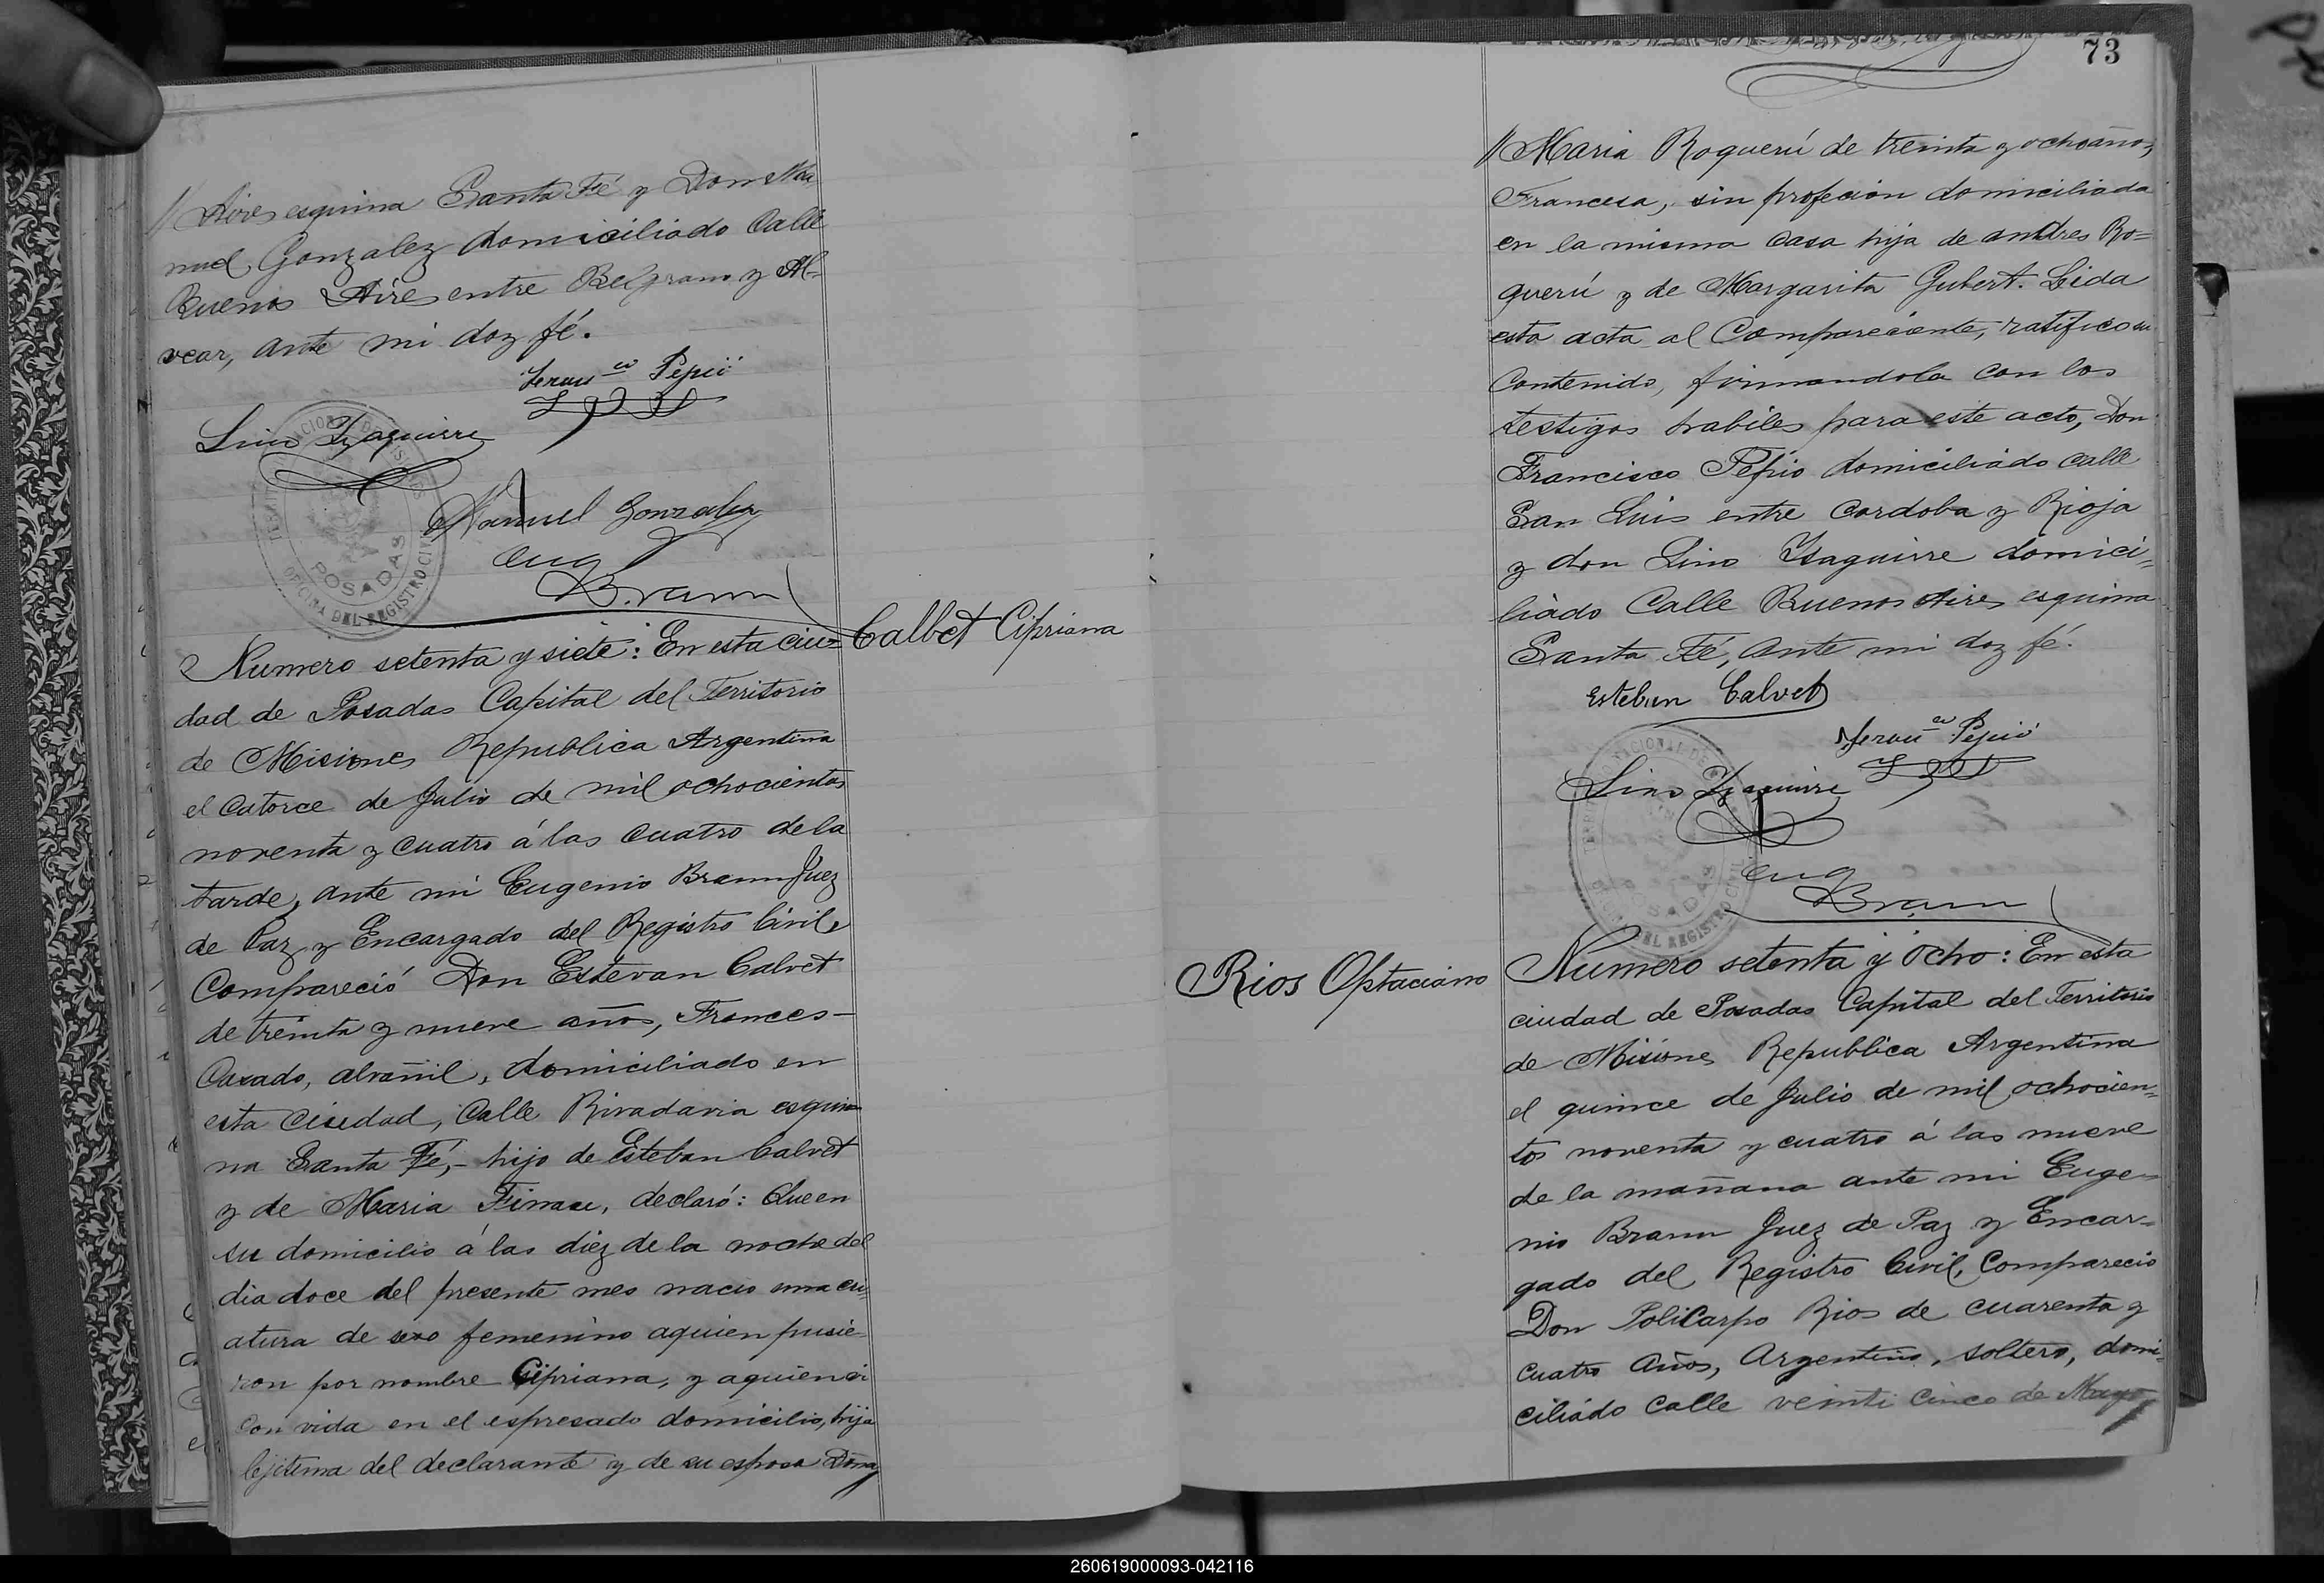 // Aires esquina Santa Fé y Don Ma-
nuel Gonzalez domiciliado Calle
Buenos Aires entre Belgrano y Al-
vear, ante mi doy fé.
Franco Pepió
Lino Yzaguirre
Manuel Gonzalez
Eug
Braun
POSADAS
OFICINA DEL REGISTRO CIVIL
Numero setenta y siete: En esta ciu-
Calbet Cipriana
dad de Posadas Capital del Territorio
de Misiones Republica Argentina
el catorce de Julio de mil ochocientos
noventa y cuatro á las cuatro de la
tarde, ante mi Eugenio Braun Juez
de Paz y Encargado del Registro Civil,
Compareció Don Estevan Calvet
de treinta y nueve años, Frances-
Casado, alvañil, domiciliado en
esta Ciudad, Calle Rivadavia esqui-
na Santa Fé,- hijo de Esteban Calvet
y de Maria, declaró: Que en
su domicilio á las diez de la noche del
dia doce del presente mes nacio una cri-
atura de sexo femenino aquien pusie-
ron por nombre Cipriana, y aquien vi
con vida en el espresado domicilio, hija
lejitima del declarante y de su esposa Doña
73
// Maria Roquerú de treinta y ocho años,
Francesa, sin profecion domiciliada
en la misma casa hija de andres Ro=
querú y de Margarita Gubert. Leida
esta acta al Compareciente, ratificó su
Contenido, firmandola con los
testigos habiles para este acto, Don
Francisco Pepio domiciliado calle
San Luis entre Cordoba y Rioja
y don Lino Ysaguirre domici-
liado Calle Buenos Aires esquina
Santa Fé, ante mi doy fé.
Esteban Calvet
Franco Pepió
Lino Yzaguirre
Eug
Braun
POSADAS
DEL REGISTRO CIVIL
Rios Optaciano
Numero setenta y ocho: En esta
ciudad de Posadas Capital del Territorio
de Misiones Republica Argentina
el quince de Julio de mil ochocien-
tos noventa y cuatro á las nueve
de la mañana ante mi Euge-
nio Braun Juez de Paz y Encar-
gado del Registro Civil, Comparecio
Don PoliCarpo Rios de cuarenta y
cuatro Años, Argentino, soltero, domi-
ciliádo Calle veinti Cinco de Mayo
260619000093-042116